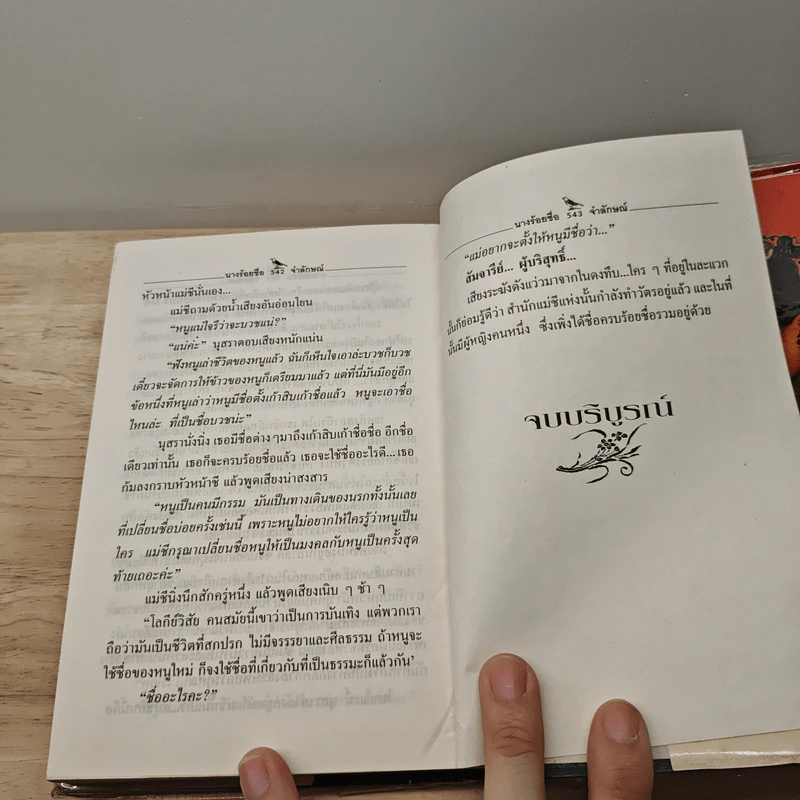 นางร้อยชื่อ 542 จำลักษณ์
หัวหน้าแม่ชีนั่นเอง...
แม่ชีถามด้วยน้ำเสียงอันอ่อนโยน
“หนูแน่ใจรึว่าจะบวชแน่?”
“แน่ค่ะ” นุสราตอบเสียงหนักแน่น
“ฟังหนูเล่าชีวิตของหนูแล้ว ฉันก็เห็นใจเอาล่ะบวชก็บวช
เดี๋ยวจะจัดการให้ข้าวของหนูก็เตรียมมาแล้ว แต่ที่นี่มันมีอยู่อีก
ข้อหนึ่งที่หนูเล่าว่าหนูมีชื่อตั้งเก้าสิบเก้าชื่อแล้ว หนูจะเอาชื่อ
ไหนล่ะ ที่เป็นชื่อบวชน่ะ”
นุสรานั่งนิ่ง เธอมีชื่อต่างๆมาถึงเก้าสิบเก้าชื่อชื่อ อีกชื่อ
เดียวเท่านั้น เธอก็จะครบร้อยชื่อแล้ว เธอจะใช้ชื่ออะไรดี...เธอ
ก้มลงกราบหัวหน้าชี แล้วพูดเสียงน่าสงสาร
“หนูเป็นคนมีกรรม มันเป็นทางเดินของนรกทั้งนั้นเลย
ที่เปลี่ยนชื่อบ่อยครั้งเช่นนี้ เพราะหนูไม่อยากให้ใครรู้ว่าหนูเป็น
ใคร แม่ชีกรุณาเปลี่ยนชื่อหนูให้เป็นมงคลกับหนูเป็นครั้งสุด
ท้ายเถอะค่ะ”
แม่ชีนิ่งนึกสักครู่หนึ่ง แล้วพูดเสียงเนิบ ๆ ช้า ๆ
“โลกีย์วิสัย คนสมัยนี้เขาว่าเป็นการบันเทิง แต่พวกเรา
ถือว่ามันเป็นชีวิตที่สกปรก ไม่มีจรรยาและศีลธรรม ถ้าหนูจะ
ใช้ชื่อของหนูใหม่ ก็จงใช้ชื่อที่เกี่ยวกับที่เป็นธรรมะก็แล้วกัน’
“ชื่ออะไรคะ?”
นางร้อยชื่อ 543 จำลักษณ์
“แม่อยากจะตั้งให้หนูมีชื่อว่า...”
สัมจารีย์... ผู้บริสุทธิ์...
เสียงระฆังดังแว่วมาจากในดงทึบ...ใคร ๆ ที่อยู่ในละแวก
นั้นก็ย่อมรู้ดีว่า สำนักแม่ชีแห่งนั้นกำลังทำวัตรอยู่แล้ว และในที่
นั้นมีผู้หญิงคนหนึ่ง ซึ่งเพิ่งได้ชื่อครบร้อยชื่อรวมอยู่ด้วย
จบบริบูรณ์